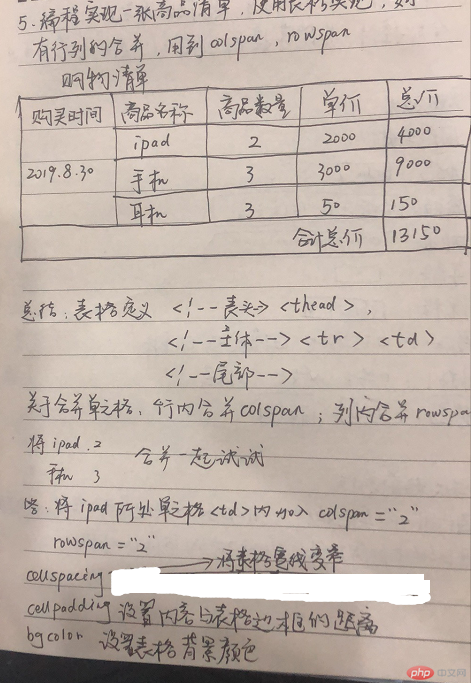 5.编程实现一张商品清单,使用表格实现,
有行列的合并,用到colspan,rowspan
购物清单
购买时间 商品名称 商品数量 单价 总价
ipad 2 2000 4000
2019.8.30 手机 3 3000 9000
耳机 3 50 150
合计总价 13150
总结:表格定义 <!--表头-> <thead>,
<!--主体--> <tr> <td>
<!--尾部-->
关于合并单元格,行内合并colspan;列内合并rowspa
将ipad 2 合并一起试试
手机 3
答:将ipad所处单元格<td>内加入 colspan="2"
rowspan="2"
cellspacing 将表格
cellpadding 设置内容与表格边框的距离
bgcolor 设置表格背景颜色
php 中文网